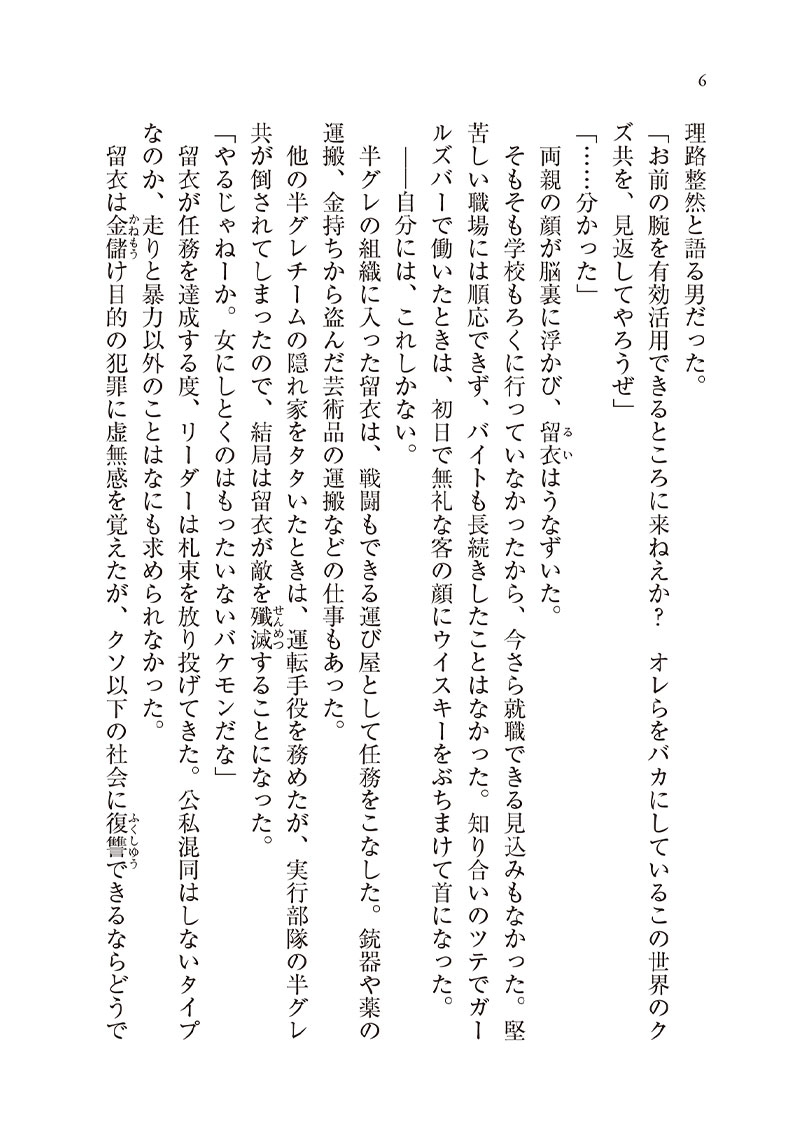 6
理路整然と語る男だった。
「お前の腕を有効活用できるところに来ねえか?　オレらをバカにしているこの世界のク
ズ共を、見返してやろうぜ」
「……分かった」
　両親の顔が脳裏に浮かび、留衣はうなずいた。
　そもそも学校もろくに行っていなかったから、今さら就職できる見込みもなかった。堅
苦しい職場には順応できず、バイトも長続きしたことはなかった。知り合いのツテでガー
ルズバーで働いたときは、初日で無礼な客の顔にウイスキーをぶちまけて首になった。
　――自分には、これしかない。
　半グレの組織に入った留衣は、戦闘もできる運び屋として任務をこなした。銃器や薬の
運搬、金持ちから盗んだ芸術品の運搬などの仕事もあった。
　他の半グレチームの隠れ家をタタいたときは、運転手役を務めたが、実行部隊の半グレ
共が倒されてしまったので、結局は留衣が敵を殲滅することになった。
「やるじゃねーか。女にしとくのはもったいないバケモンだな」
　留衣が任務を達成する度、リーダーは札束を放り投げてきた。公私混同はしないタイプ
なのか、走りと暴力以外のことはなにも求められなかった。
　留衣は金儲け目的の犯罪に虚無感を覚えたが、クソ以下の社会に復讐できるならどうで